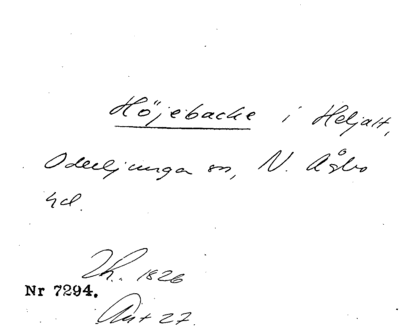 Höjebacke i Heljalt,
Oderljunga sn, N. Åsbo
hd.
Lh. 1826
Nr 7294.
Ant 27.